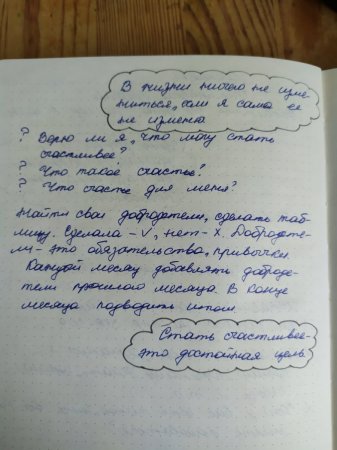 В жизни ничего не изме-
ниться, если я сама её
не изменю
? Верю ли я, что могу стать
счастливее?
? Что такое счастье?
? Что счастье для меня?
Найти свои добродетели, сделать таб-
лицу. Сделала - V, нет - X. Добродете-
ли - это обязательства, привычки.
Каждый месяц добавлять доброде-
тели прошлого месяца. В конце
месяца подводить итог.
Стать счастливее-
это достойная цель.